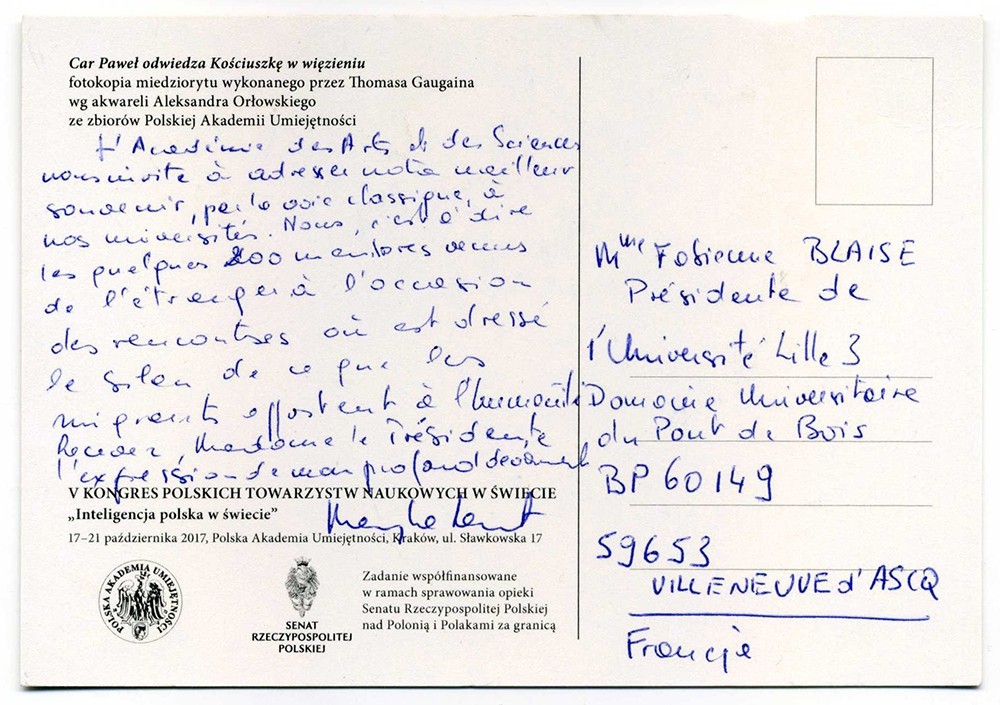 Car Paweł odwiedza Kościuszkę w więzieniu
fotokopia miedziorytu wykonanego przez Thomasa Gaugaina
wg akwareli Aleksandra Orłowskiego
ze zbiorów Polskiej Akademii Umiejętności
L'Académie des Arts et des Sciences
nous invite à adresser notre meilleur
souvenir, par la voie classique, à
nos universités. Nous, c'est à dire
les quelques 200 membres venus
de l'étranger à l'occasion
des rencontres où est dressé
le bilan de ce que les
migrants apportent à l'humanité
Recevez, Madame la Présidente,
l'expression de mon profond dévouement
V KONGRES POLSKICH TOWARZYSTW NAUKOWYCH W ŚWIECIE
„Inteligencja polska w świecie”
17–21 października 2017, Polska Akademia Umiejętności, Kraków, ul. Sławkowska 17
POLSKA AKADEMIA UMIEJĘTNOŚCI
SENAT
RZECZYPOSPOLITEJ
POLSKIEJ
Zadanie współfinansowane
w ramach sprawowania opieki
Senatu Rzeczypospolitej Polskiej
nad Polonią i Polakami za granicą
Mme Fabienne BLAISE
Présidente de
l'Université Lille 3
Domaine Universitaire
du Pont de Bois
BP 60149
59653
VILLENEUVE d'ASCQ
Francja